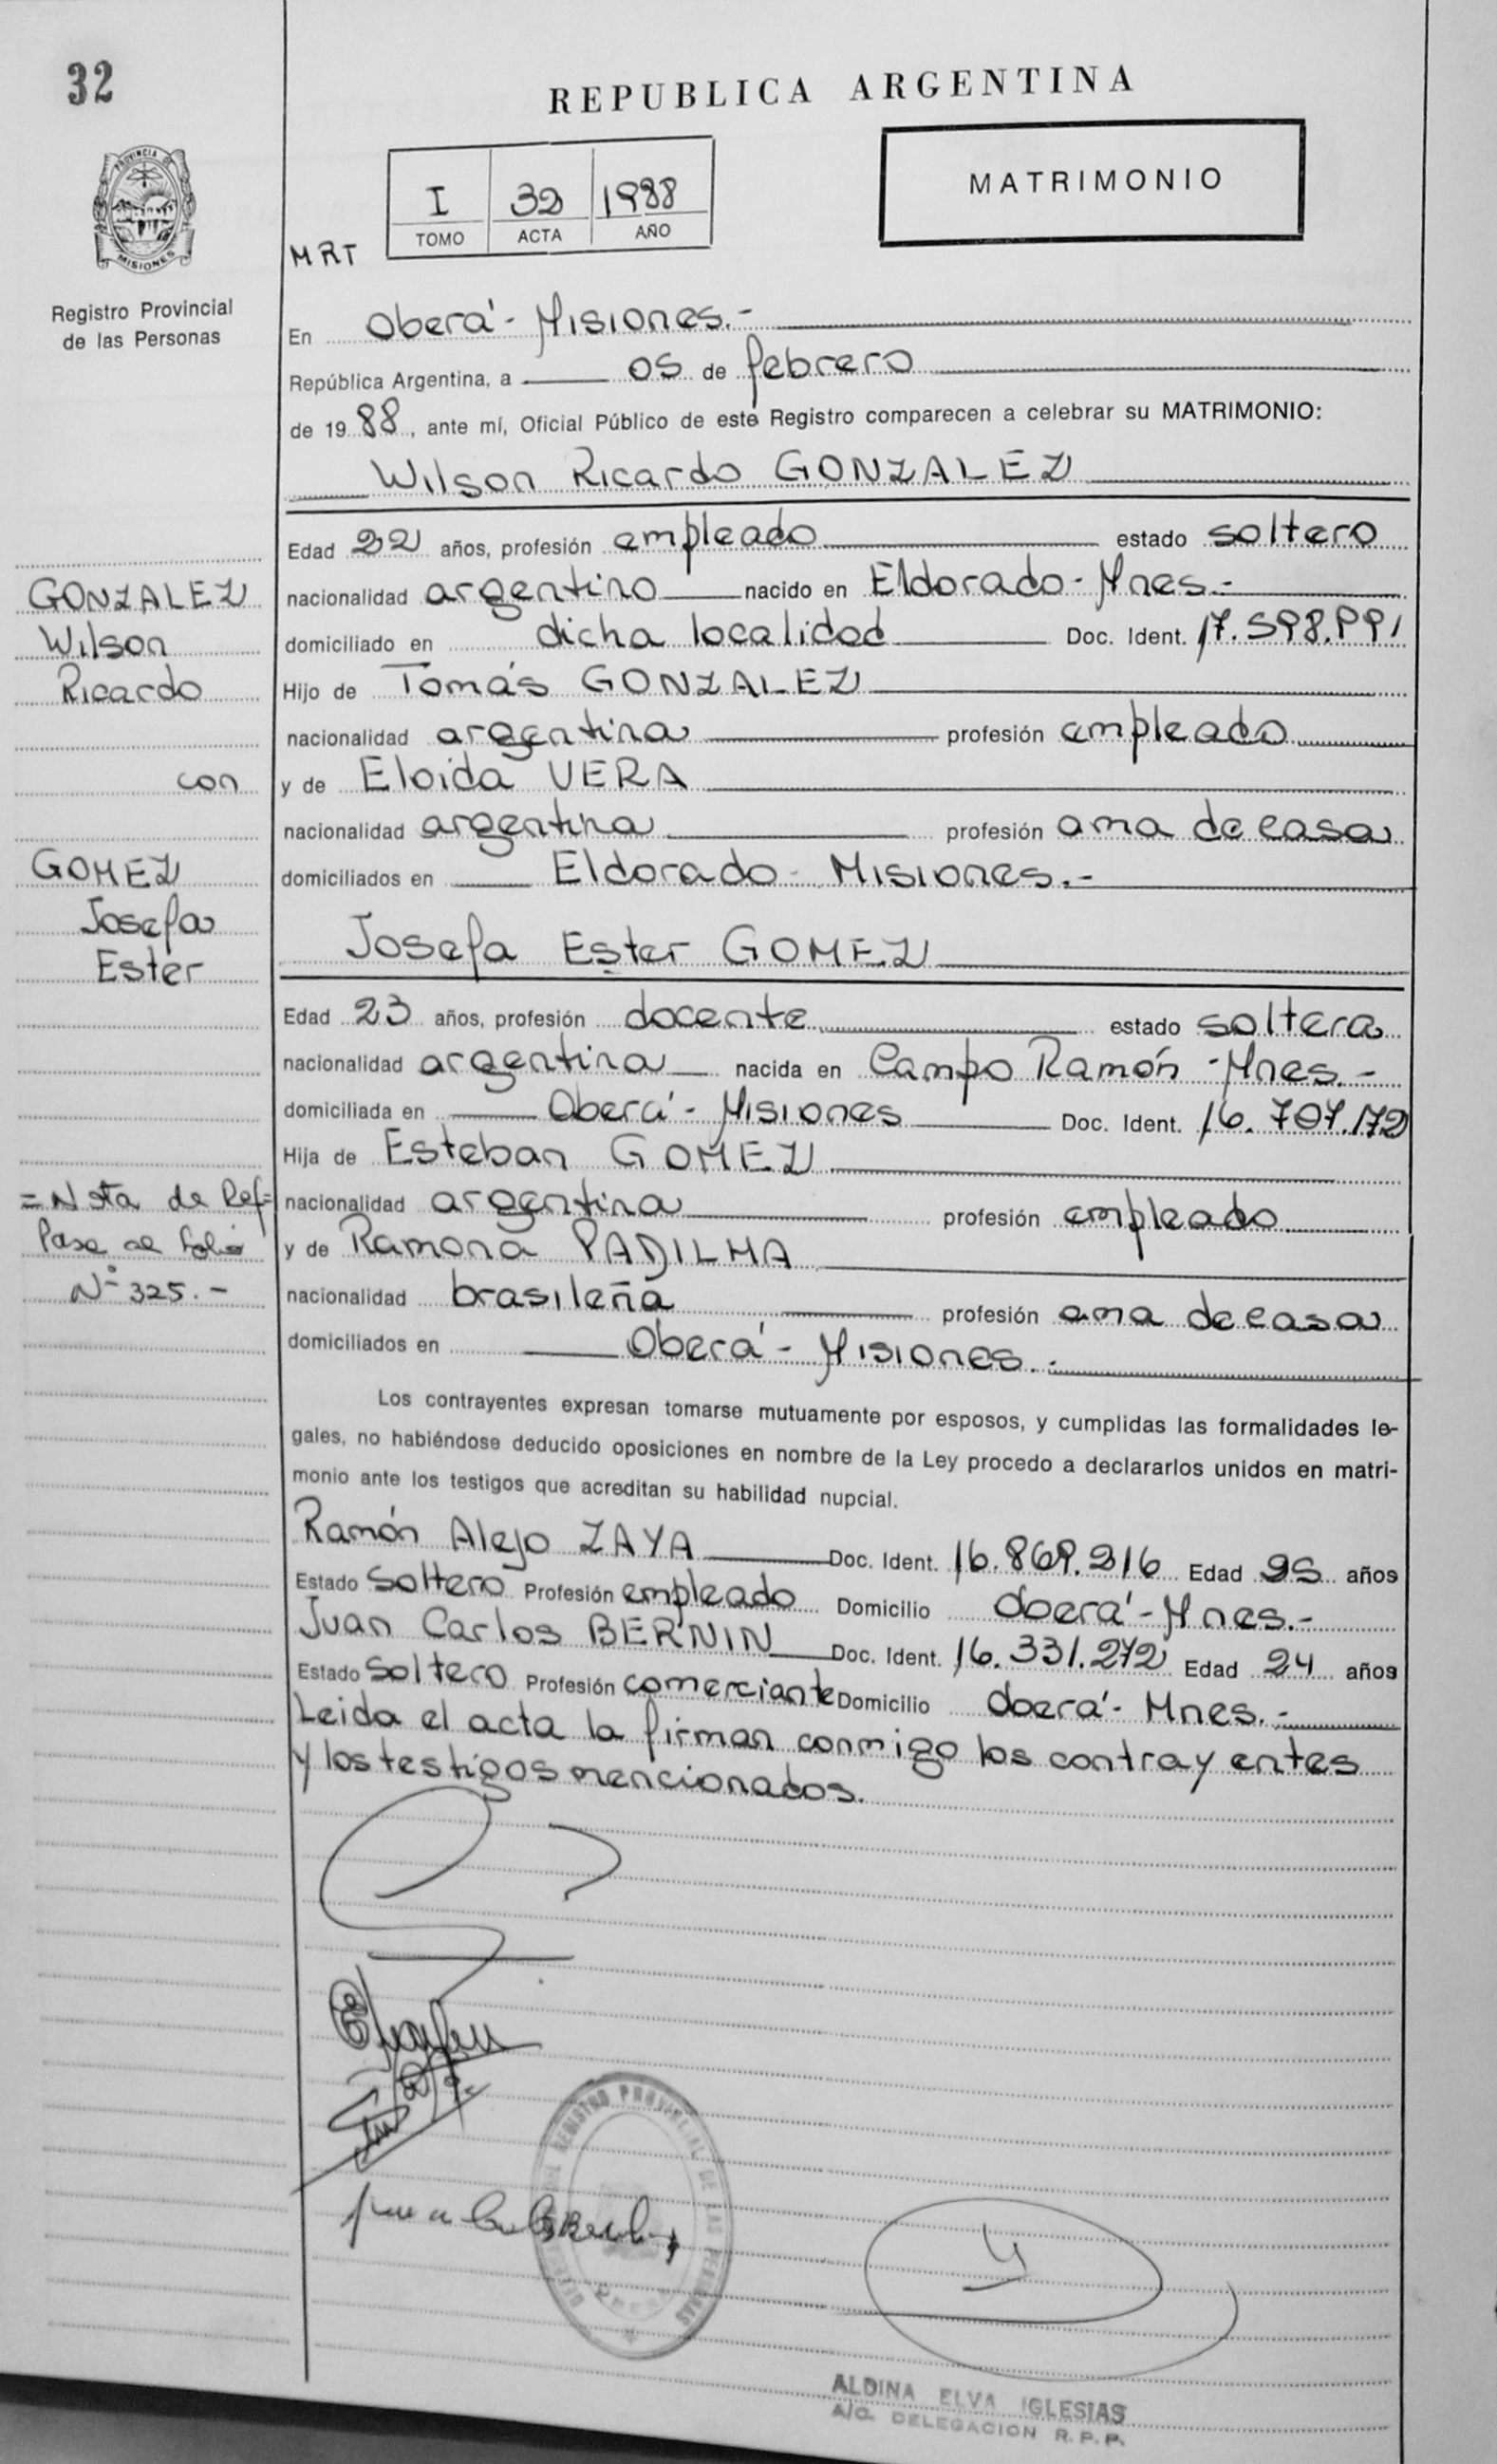 32
REPUBLICA ARGENTINA
PROVINCIA DE
MISIONES
I 32 1988
TOMO ACTA AÑO
MATRIMONIO
MRT
Registro Provincial
de las Personas
En Oberá - Misiones.-
República Argentina, a 05 de febrero
de 1988, ante mí, Oficial Público de este Registro comparecen a celebrar su MATRIMONIO:
Wilson Ricardo GONZALEZ
Edad 22 años, profesión empleado estado soltero
nacionalidad argentino nacido en Eldorado - Mnes.-
domiciliado en dicha localidad Doc. Ident. 17.598.991
Hijo de Tomás GONZALEZ
nacionalidad argentina profesión empleado
y de Eloida VERA
nacionalidad argentina profesión ama de casa
domiciliados en Eldorado - Misiones.-
GONZALEZ
Wilson
Ricardo
con
GOMEZ
Josefa
Ester
Josefa Ester GOMEZ
Edad 23 años, profesión docente estado soltera
nacionalidad argentina nacida en Campo Ramón - Mnes.-
domiciliada en Oberá - Misiones Doc. Ident. 16.707.172
Hija de Esteban GOMEZ
nacionalidad argentina profesión empleado
y de Ramona PADILHA
nacionalidad brasileña profesión ama de casa
domiciliados en Oberá - Misiones.-
=Nota de Ref=
Pase al folio
Nº 325.-
Los contrayentes expresan tomarse mutuamente por esposos, y cumplidas las formalidades le-
gales, no habiéndose deducido oposiciones en nombre de la Ley procedo a declararlos unidos en matri-
monio ante los testigos que acreditan su habilidad nupcial.
Ramón Alejo ZAYA Doc. Ident. 16.869.216 Edad 25 años
Estado Soltero Profesión empleado Domicilio Oberá - Mnes.-
Juan Carlos BERNIN Doc. Ident. 16.331.272 Edad 24 años
Estado Soltero Profesión comerciante Domicilio Oberá - Mnes.-
Leida el acta la firman conmigo los contrayentes
y los testigos mencionados.
REGISTRO PROVINCIAL DE LAS PERSONAS
OBERA
ALDINA ELVA IGLESIAS
A/C. DELEGACION R.P.P.